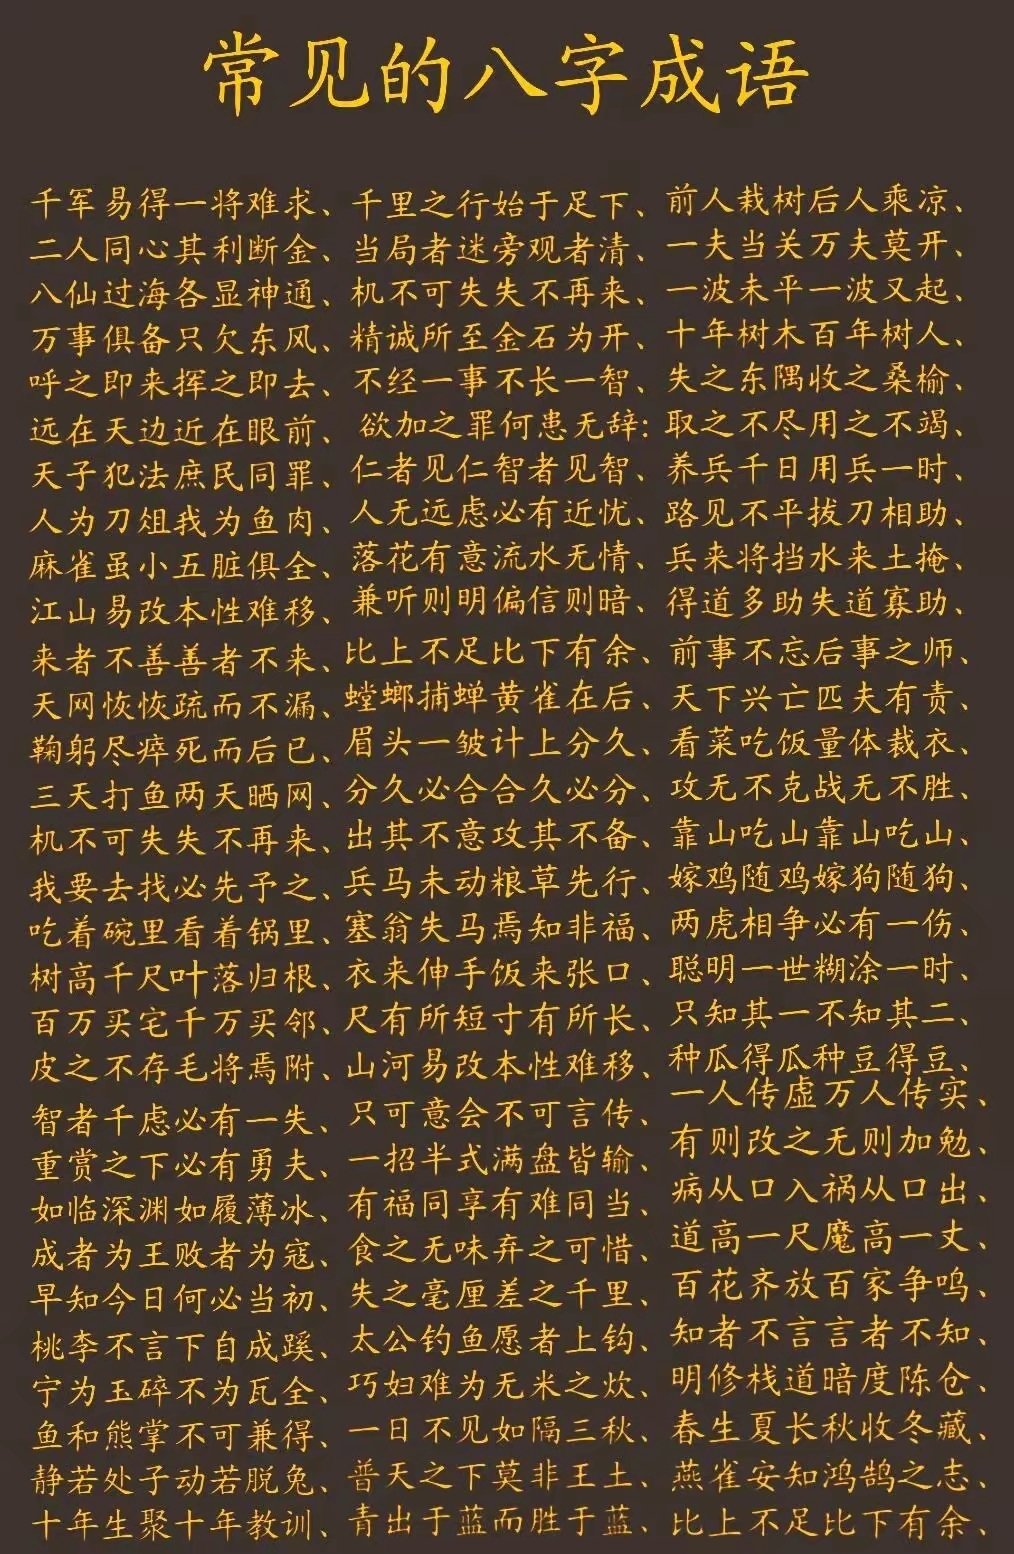 常见的八字成语
千军易得一将难求、千里之行始于足下、前人栽树后人乘凉、
二人同心其利断金、当局者迷旁观者清、一夫当关万夫莫开、
八仙过海各显神通、机不可失失不再来、一波未平一波又起、
万事俱备只欠东风、精诚所至金石为开、十年树木百年树人、
呼之即来挥之即去、不经一事不长一智、失之东隅收之桑榆、
远在天边近在眼前、欲加之罪何患无辞:取之不尽用之不竭、
天子犯法庶民同罪、仁者见仁智者见智、养兵千日用兵一时、
人为刀俎我为鱼肉、人无远虑必有近忧、路见不平拔刀相助、
麻雀虽小五脏俱全、落花有意流水无情、兵来将挡水来土掩、
江山易改本性难移、兼听则明偏信则暗、得道多助失道寡助、
来者不善善者不来、比上不足比下有余、前事不忘后事之师、
天网恢恢疏而不漏、螳螂捕蝉黄雀在后、天下兴亡匹夫有责、
鞠躬尽瘁死而后已、眉头一皱计上分久、看菜吃饭量体裁衣、
三天打鱼两天晒网、分久必合合久必分、攻无不克战无不胜、
机不可失失不再来、出其不意攻其不备、靠山吃山靠山吃山、
我要去找必先予之、兵马未动粮草先行、嫁鸡随鸡嫁狗随狗、
吃着碗里看着锅里、塞翁失马焉知非福、两虎相争必有一伤、
树高千尺叶落归根、衣来伸手饭来张口、聪明一世糊涂一时、
百万买宅千万买邻、尺有所短寸有所长、只知其一不知其二、
皮之不存毛将焉附、山河易改本性难移、种瓜得瓜种豆得豆、
智者千虑必有一失、只可意会不可言传、一人传虚万人传实、
重赏之下必有勇夫、一招半式满盘皆输、有则改之无则加勉、
如临深渊如履薄冰、有福同享有难同当、病从口入祸从口出、
成者为王败者为寇、食之无味弃之可惜、道高一尺魔高一丈、
早知今日何必当初、失之毫厘差之千里、百花齐放百家争鸣、
桃李不言下自成蹊、太公钓鱼愿者上钩、知者不言言者不知、
宁为玉碎不为瓦全、巧妇难为无米之炊、明修栈道暗度陈仓、
鱼和熊掌不可兼得、一日不见如隔三秋、春生夏长秋收冬藏、
静若处子动若脱兔、普天之下莫非王土、燕雀安知鸿鹄之志、
十年生聚十年教训、青出于蓝而胜于蓝、比上不足比下有余、